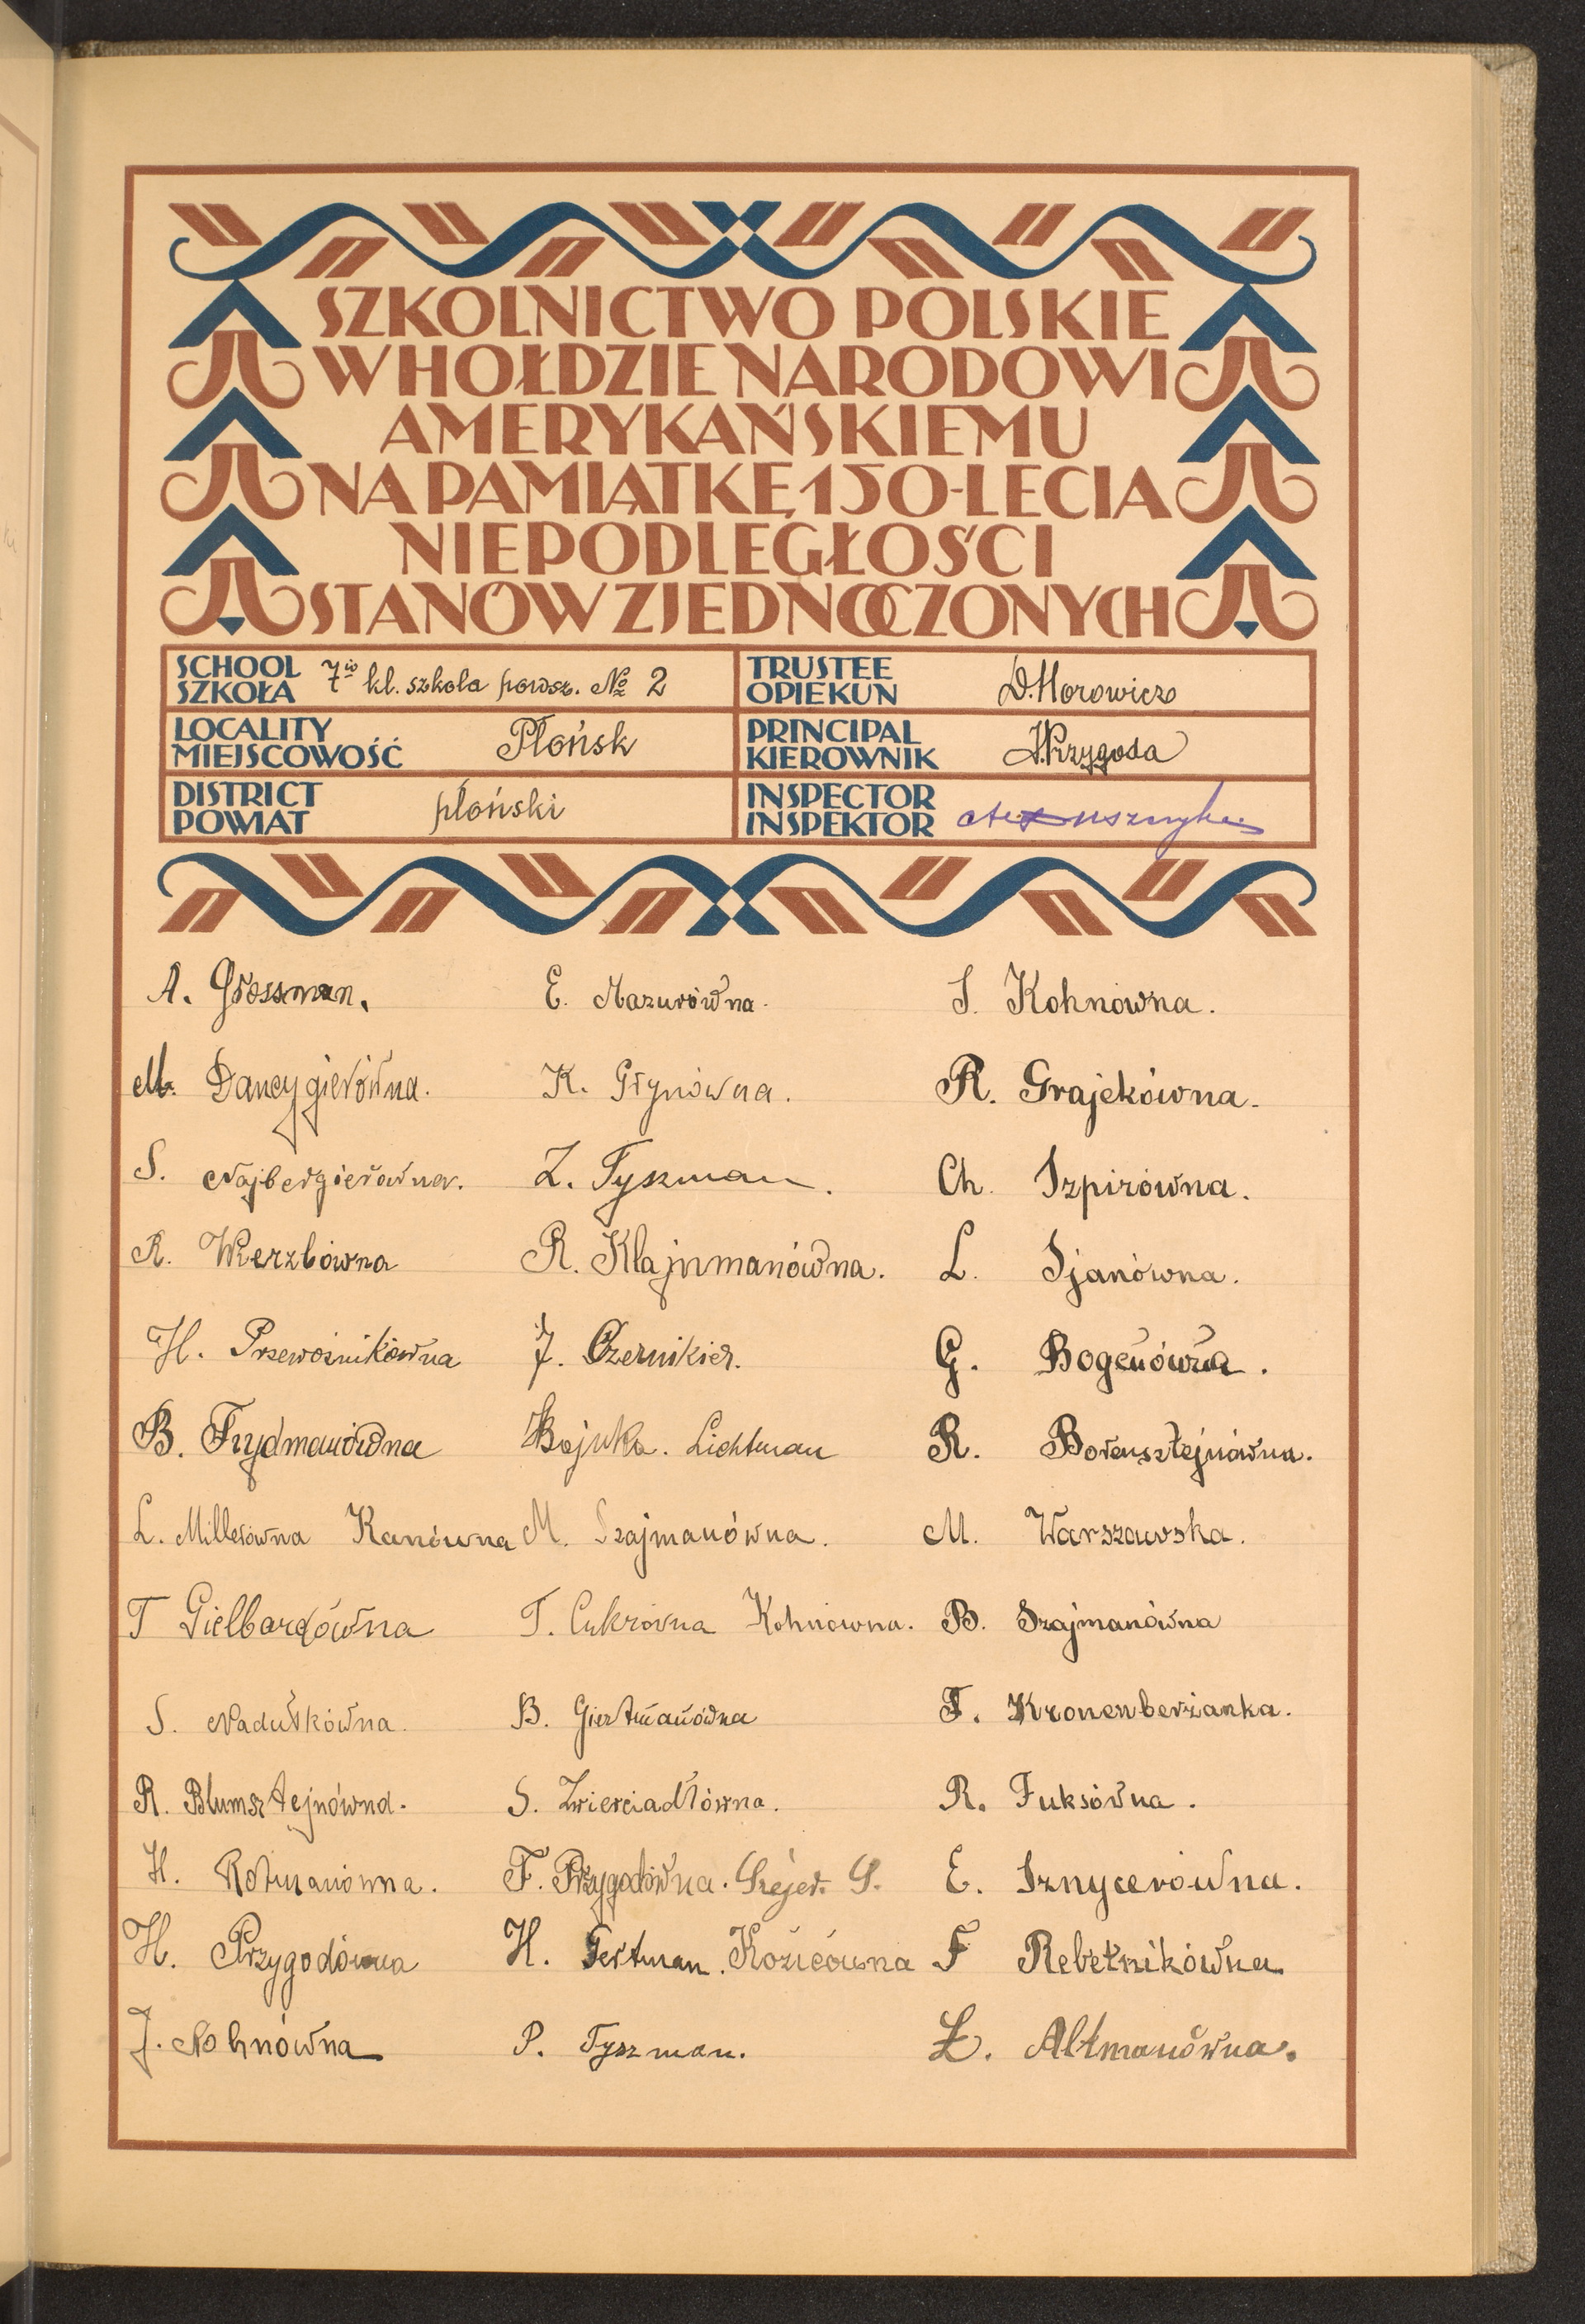 SZKOLNICTWO POLSKIE
W HOŁDZIE NARODOWI
AMERYKAŃSKIEMU
NA PAMIĄTKĘ 150-LECIA
NIEPODLEGŁOŚCI
STANÓW ZJEDNOCZONYCH
SCHOOL
SZKOŁA 7io kl. szkoła powsz. № 2
TRUSTEE
OPIEKUN D. Horowicz
LOCALITY
MIEJSCOWOŚĆ Płońsk
PRINCIPAL
KIEROWNIK Przygoda
DISTRICT
POWIAT płoński
INSPECTOR
INSPEKTOR
A. Grossman.
M. Dancygierówna.
S. Najbergierówna.
R. Wierzbówna
H. Przewoźnikówna
B. Frydmanówna
L. Millerówna Kanówna
T Gielbardówna
S. Nadułkówna.
R. Blumsztejnówna.
H. Rotmanówna.
H. Przygodówna
J. Nohnówna
E. Mazurówna.
K. Grynówna.
Z. Tyszman.
R. Klajnmanówna.
J. Czernikier.
Bajnka. Lichtman
M. Szajmanówna.
T. Cukrówna Kohnówna.
B. Giertmanówna
S. Zwierciadłówna.
F. Przygodówna. Szejer. S.
H. Gertman. Kozicówna
P. Tyszman.
S. Kohnówna.
R. Grajekówna.
Ch. Szpirówna.
L. Sjanówna.
G. Bogenówna.
R. Borensztejnówna.
M. Warszawska.
B. Szajmanówna
F. Kronenberżanka.
R. Fuksówna.
E. Sznycerówna.
F Rebetnikówna
Ł. Altmanówna.